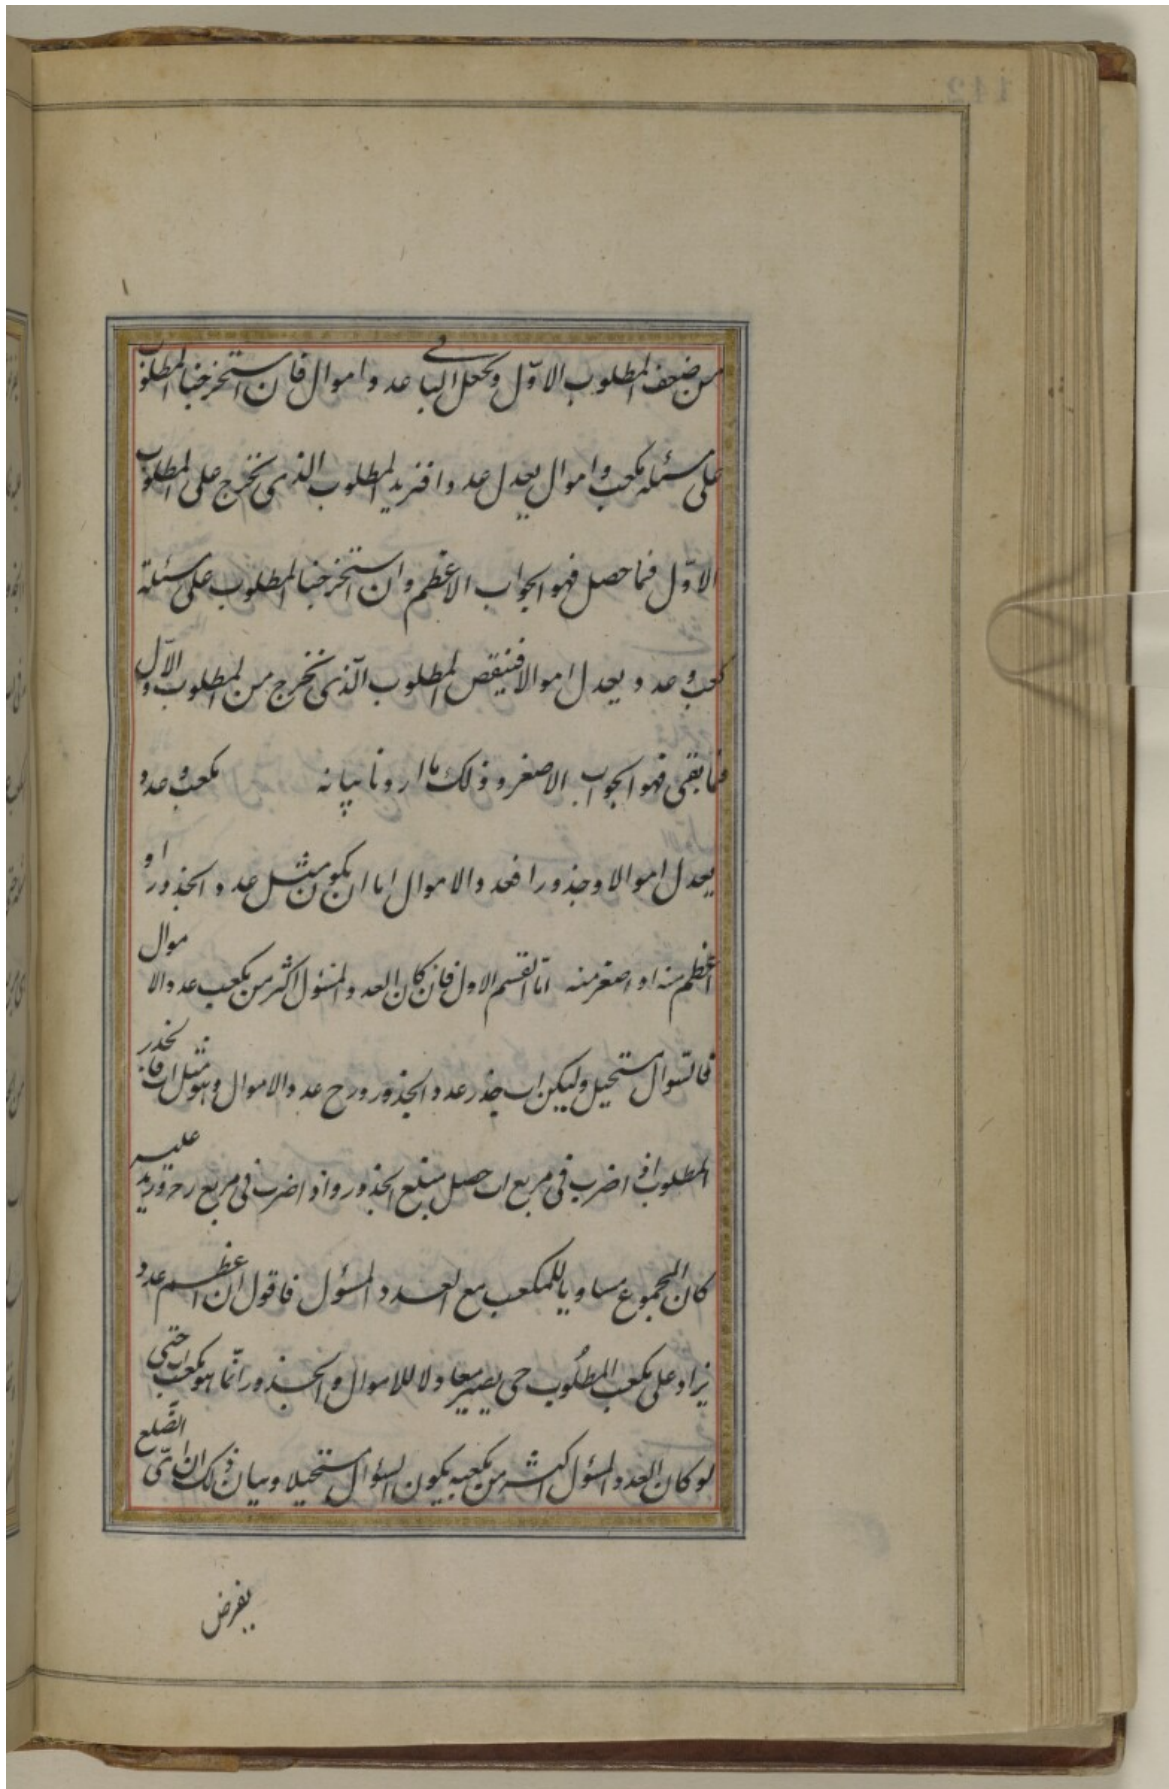 من ضعف المطلوب الاوّل ونجعل الباقي عدد اموال فان استخرجنا المطلوب
على مسئلة مكعب واموال يعدل عددا فنزيد المطلوب الذى يخرج على المطلوب
الاوّل فما حصل فهو الجواب الاعظم وان استخرجنا المطلوب على مسئلة
مكعب وعدد يعدل اموالا فنيقص المطلوب الّذى يخرج من المطلوب الاوّل
فما بقى فهو الجواب الاصغر وذلك ما اردنا بيانه مكعب وعدد
يعدل اموالا وجذورا فعدد الاموال اما ان يكون مثل عدد الجذور او
اعظم منه او اصغر منه امّا القسم الاول فان كان العدد المسئول اكثر من مكعب عدد الاموال
فالسّوال مستحيل وليكن اب جذر عدد الجذور و ب ح عدد الاموال وهو مثل اب فالجذر
المطلوب اذا ضرب فى مربع اب حصل مبلغ الجذور واذا ضرب فى مربع ب ح وزيد عليه
كان المجموع مساويا للمكعب مع العدد المسؤل فاقول ان اعظم عدد
يزاد على مكعب المطلُوب حى يصير معادلا للاموال والجذور انّما هو مكعب اب حتى
لو كان العدد المسؤل اكثر من مكعبه يكون السؤال مستحيلا وبيان ذلك ان اىّ الضّلع
يفرض
112